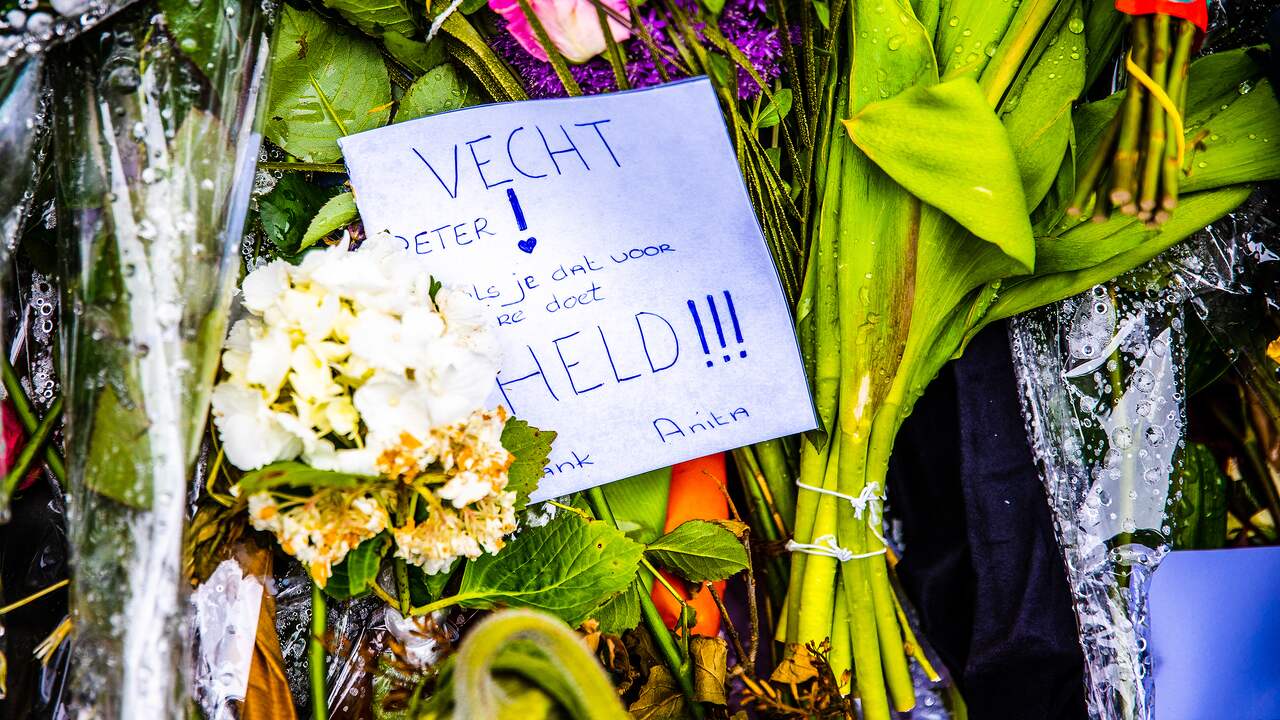 VECHT
PETER !
als je dat voor
re doet
HELD!!!
Anita
ank